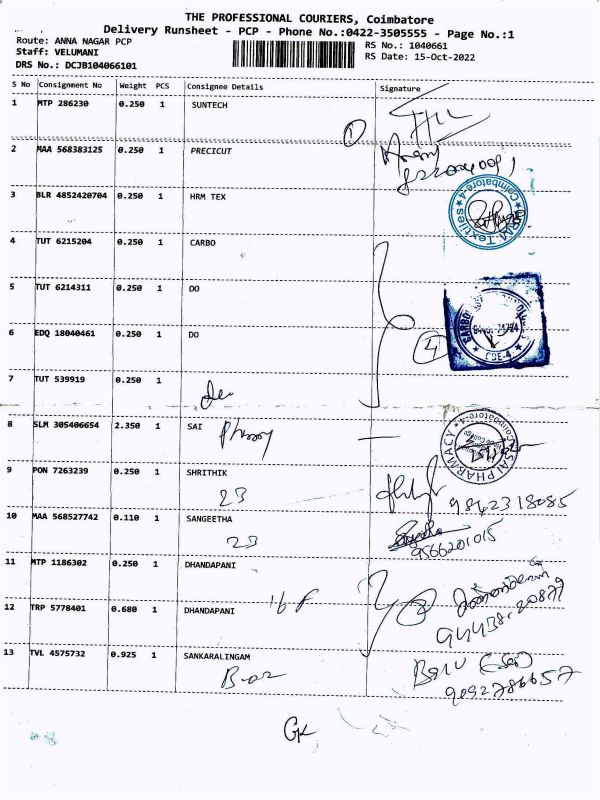 THE PROFESSIONAL COURIERS, Coimbatore
Delivery Runsheet - PCP - Phone No.:0422-3505555 - Page No.:1
Route: ANNA NAGAR PCP
Staff: VELUMANI
DRS No.: DCJB104066101
RS No.: 1040661
RS Date: 15-Oct-2022
S No Consignment No Weight PCS Consignee Details Signature
1 MTP 286230 0.250 1 SUNTECH
1
2 MAA 568383125 0.250 1 PRECICUT
3 BLR 4852420704 0.250 1 HRM TEX
4 TUT 6215204 0.250 1 CARBO
5 TUT 6214311 0.250 1 DO
6 EDQ 18040461 0.250 1 DO
4
CBE-4
7 TUT 539919 0.250 1
8 SLM 305406654 2.350 1 SAI
SAI PHARMACY Coimbatore-4
9 PON 7263239 0.250 1 SHRITHIK
23 9842318085
10 MAA 568527742 0.110 1 SANGEETHA
23 9566201015
11 MTP 1186302 0.250 1 DHANDAPANI
12 TRP 5778401 0.680 1 DHANDAPANI
2
94438-20879
13 TVL 4575732 0.925 1 SANKARALINGAM
9092786657
GK